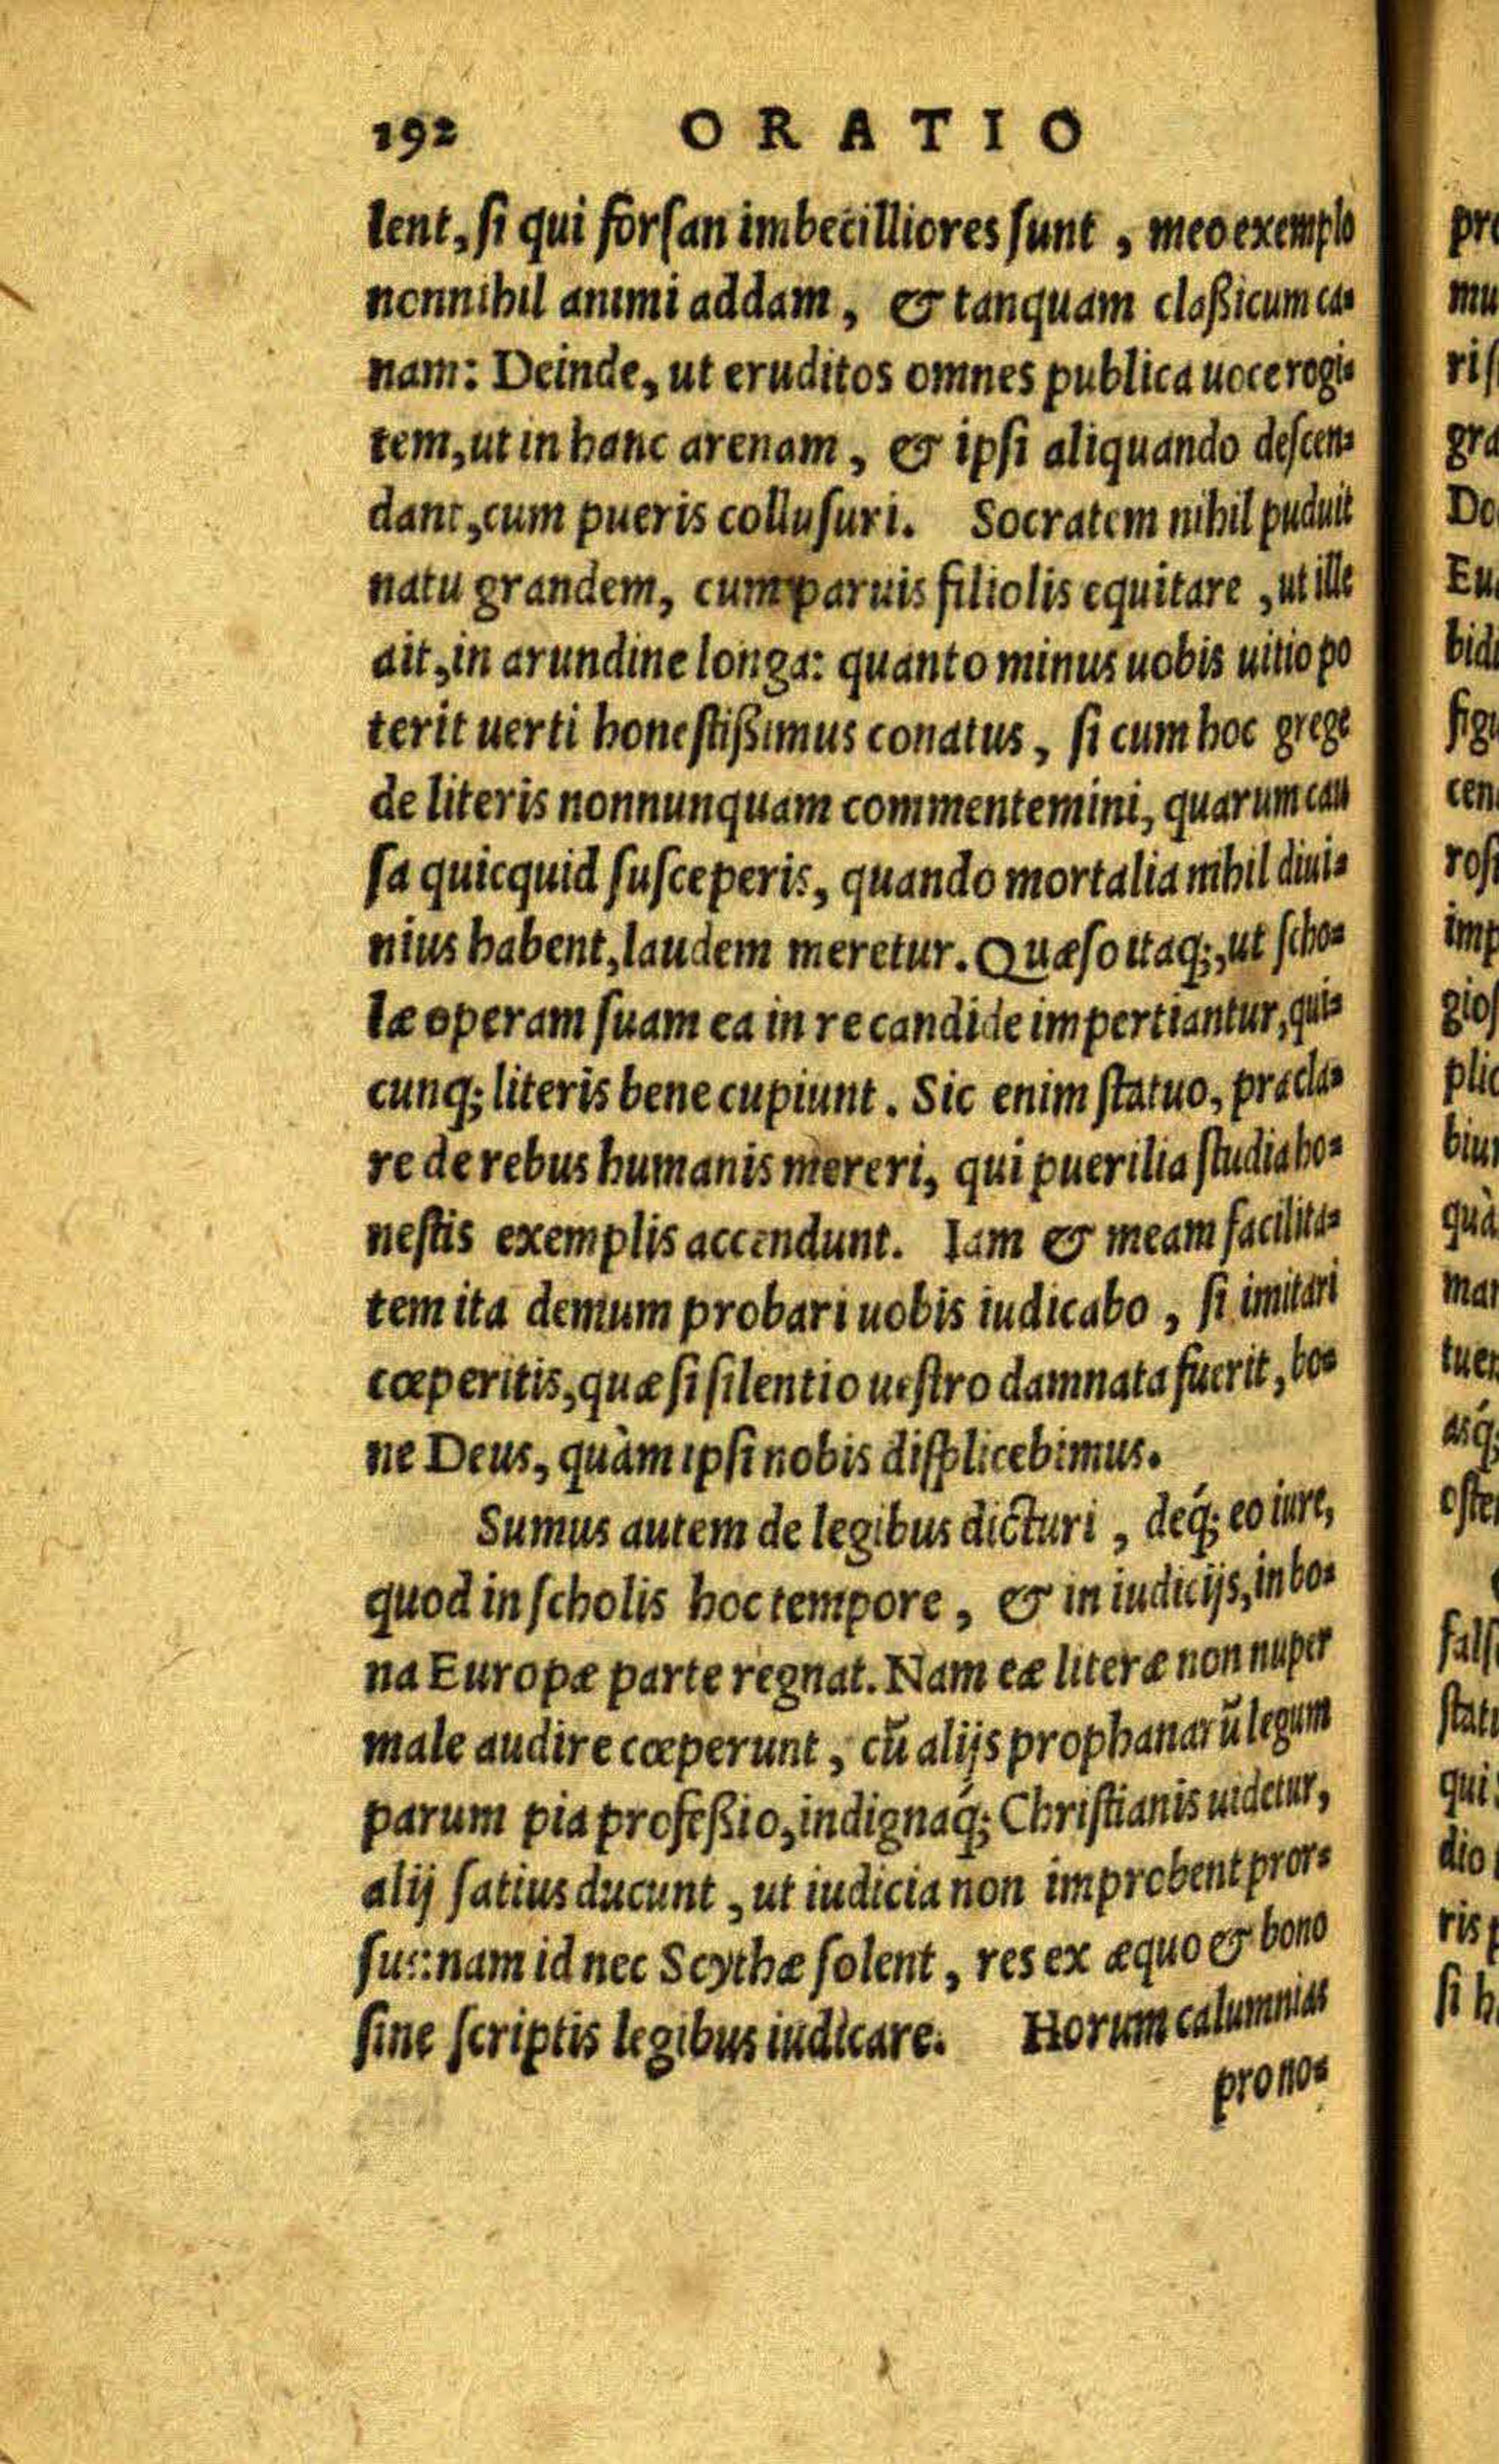 192 ORATIO
lent, ſi qui forſan imbecilliores ſunt, meo exemplo
nonnihil animi addam, & tanquam claßicum ca-
nam: Deinde, ut eruditos omnes publica uoce rogi-
tem, ut in hanc arenam, & ipſi aliquando deſcen-
dant, cum pueris colluſuri. Socratem nihil puduit
natu grandem, cum paruis filiolis equitare, ut ille
ait, in arundine longa: quanto minus uobis uitio po
terit uerti honeſtißimus conatus, ſi cum hoc grege
de literis nonnunquam commentemini, quarum cau
ſa quicquid ſuſceperis, quando mortalia nihil diui-
nius habent, laudem meretur. Quæſo itaq;, ut ſcho-
læ operam ſuam ea in re candide impertiantur, qui-
cunq; literis bene cupiunt. Sic enim ſtatuo, præcla-
re de rebus humanis mereri, qui puerilia ſtudia ho-
neſtis exemplis accendunt. Iam & meam facilita-
tem ita demum probari uobis iudicabo, ſi imitari
cœperitis, quæ ſi ſilentio ueſtro damnata fuerit, bo-
ne Deus, quàm ipſi nobis diſplicebimus.
Sumus autem de legibus dicturi, deq́; eo iure,
quod in ſcholis hoc tempore, & in iudicijs, in bo-
na Europæ parte regnat. Nam eæ literæ non nuper
male audire cœperunt, cū alijs prophanarū legum
parum pia profeßio, indignaq́; Chriſtianis uidetur,
alij ſatius ducunt, ut iudicia non improbent pror-
ſus: nam id nec Scythæ ſolent, res ex æquo & bono
ſine ſcriptis legibus iudicare. Horum calumnias
pro no-
pre
mu
riſ
gra
Do
Eu
bid
figu
cen
roſ
imp
gioſ
plic
biu
quà
mar
tuer
asq́;
oſte
falſ
ſtat
qui
dio
ris
ſi h